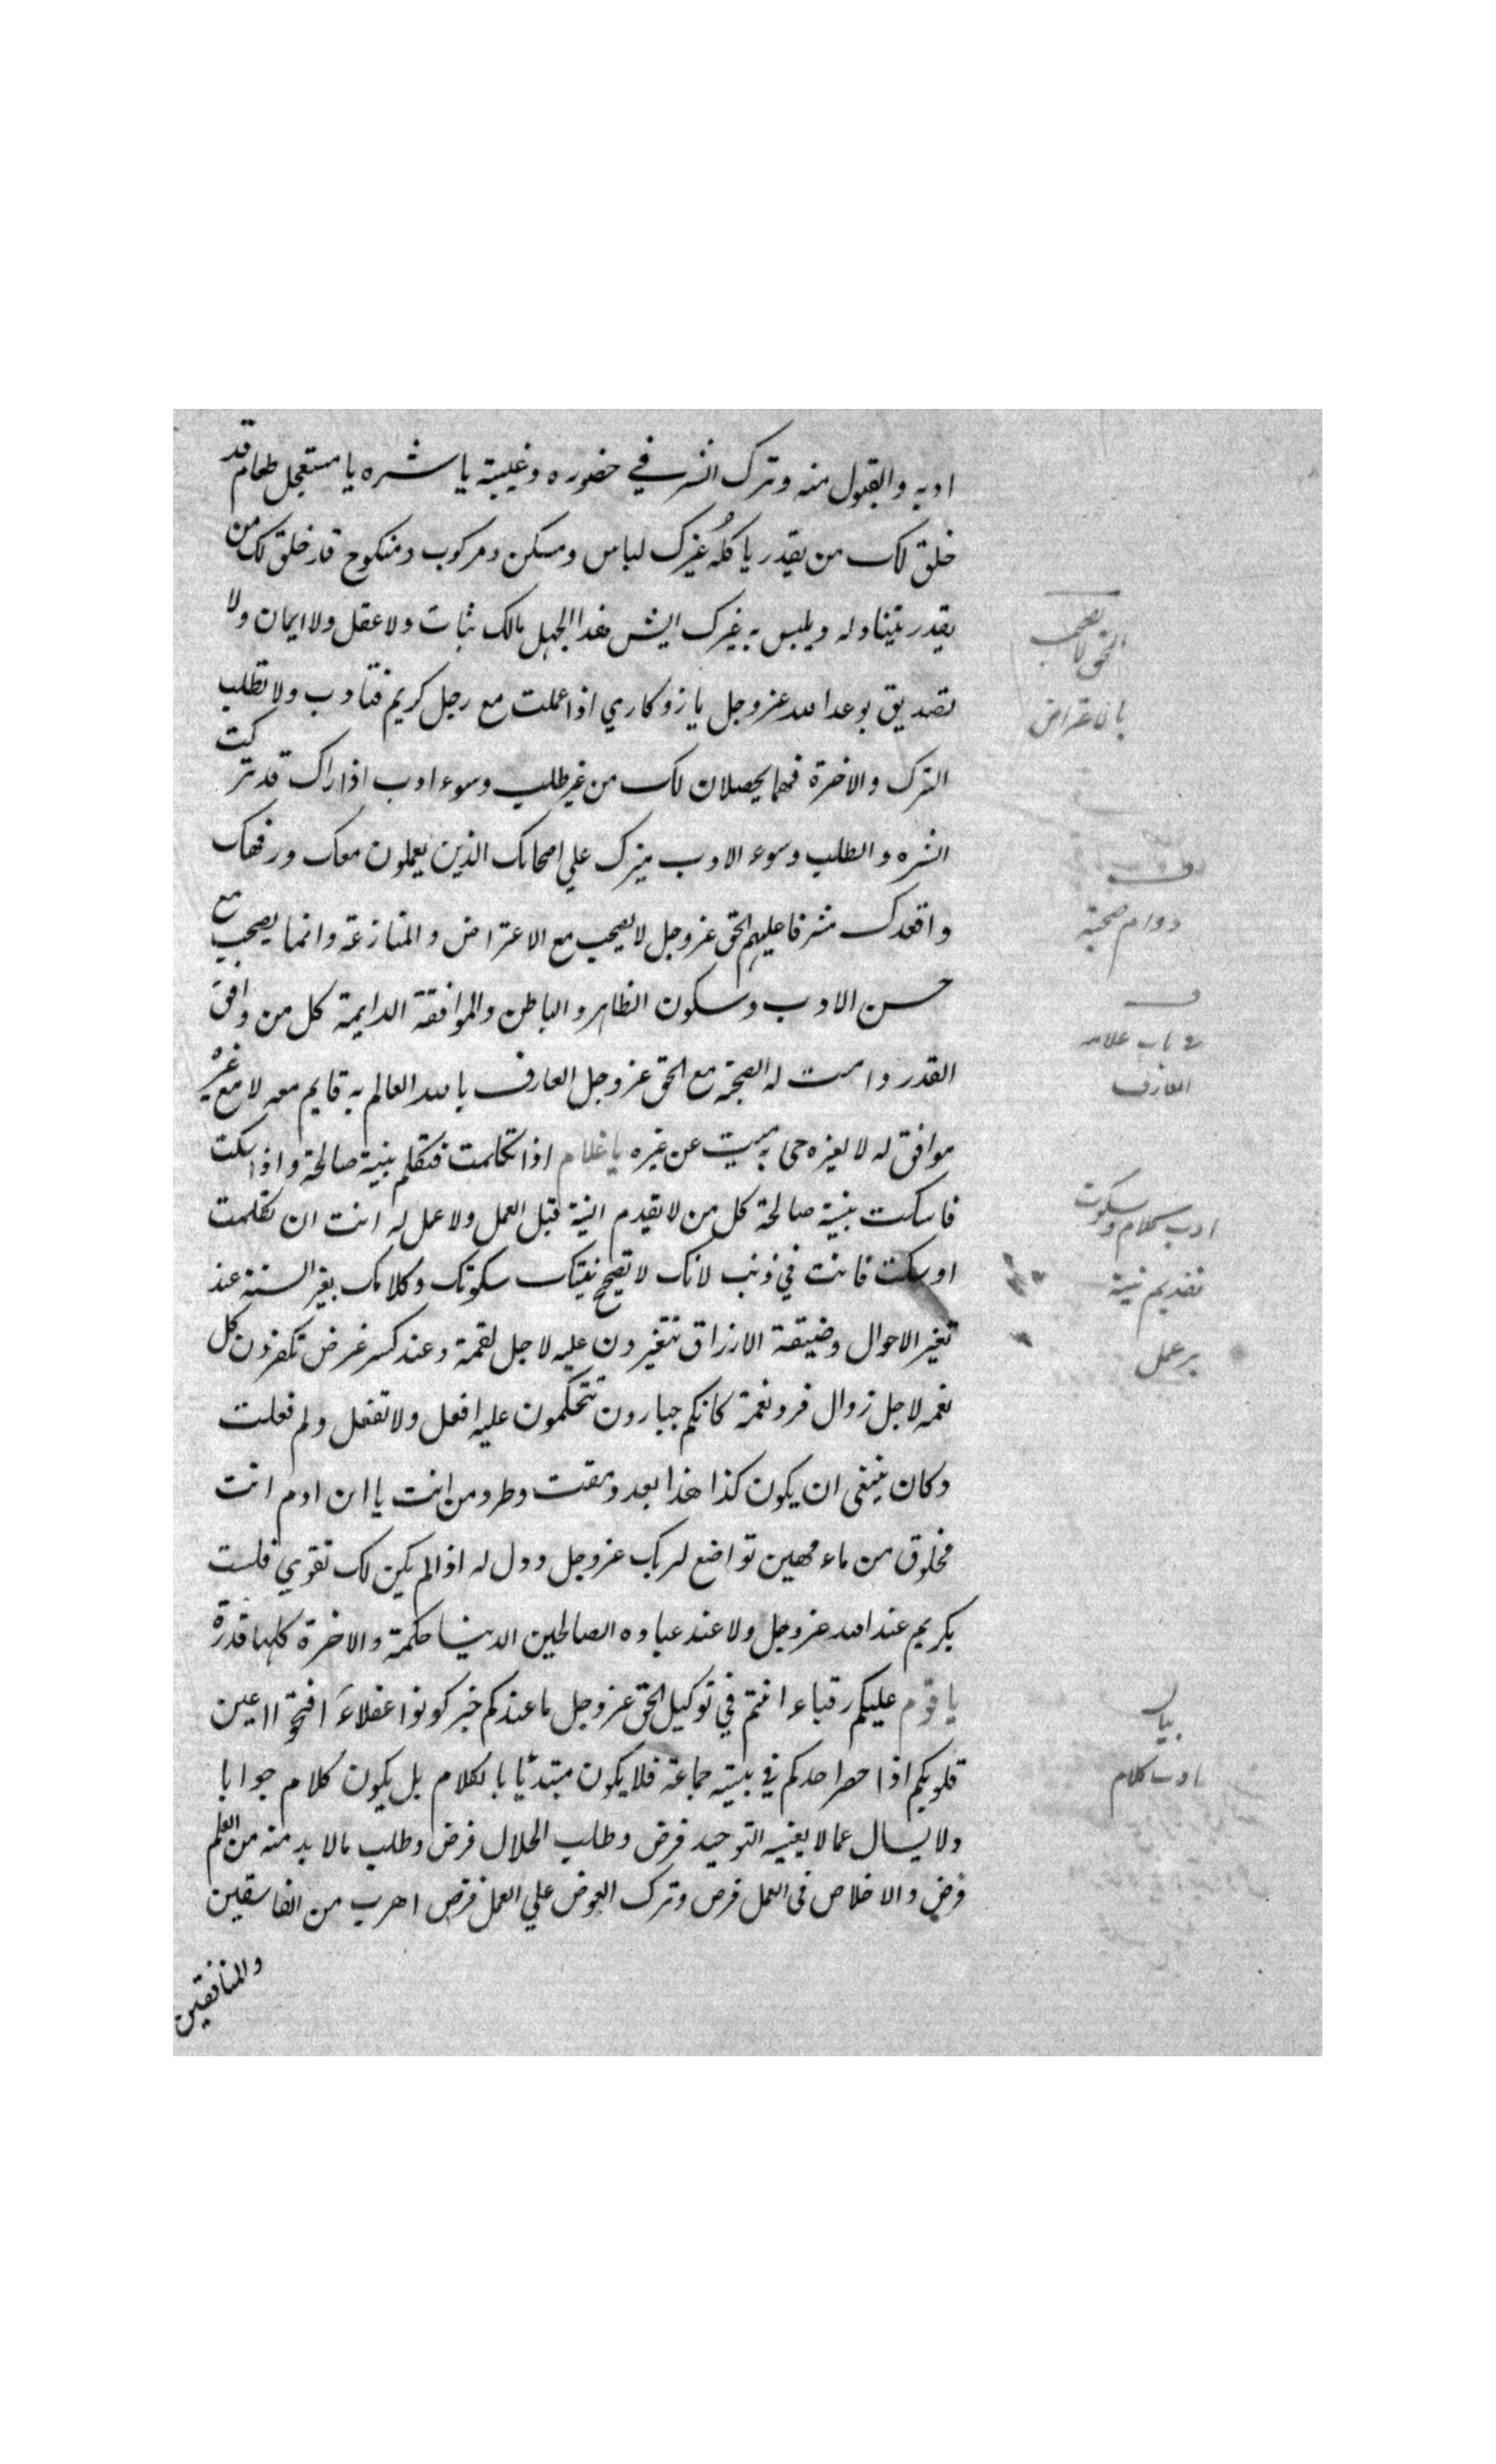 ادبه والقبول منه وترك الشره في حضوره وغيبة يا شره يا مستعجل طعام قد
خلق لك من يقدر ياكله غيرك لباس ومسكن ومركوب ومنكوح قد خلق لك من
يقدر يتناوله ويلبس به غيرك ايش هذا الجهل مالك ثبات ولا عقل ولا ايمان ولا
تصديق بوعد الله عز وجل يا زوكاري اذا عملت مع رجل كريم فتادب ولا تطلب
الترك والاخرة فهما يحصلان لك من غير طلب وسوء ادب اذا راك قد تركت
الشره والطلب وسوء الادب ميزك علي اصحابك الذين يعملون معك ورفهك
واقعدك مشرفا عليهم الحق عز وجل لا يصحب مع الاعتراض والمنازعة وانما يصحب مع
حسن الادب وسكون الظاهر والباطن والموافقة الدايمة كل من وافق
القدر دامت له الصحبة مع الحق عز وجل العارف بالله العالم به قايم معه لا مع غيره
موافق له لا لغيره حى به ميت عن غيره يا غلام اذا تكلمت فتكلم بنية صالحة واذا سكت
فاسكت بنية صالحة كل من لا يقدم النية قبل العمل ولا عمل له انت ان تكلمت
او سكت فانت في ذنب لانك لا تصحح نيتك سكوتك وكلامك بغير السنة عند
تغير الاحوال وضيقة الارزاق تتغيرون عليه لاجل لقمة وعند كسر غرض تكفرون كل
نعمه لاجل زوال فرد نعمة كانكم جبارون تتحكمون عليه افعل ولا تفعل ولم فعلت
وكان ينبغى ان يكون كذا هذا بعد ومقت وطرد من انت يا ابن ادم انت
مخلوق من ماء مهين تواضع لربك عز وجل وذل له اذا لم يكن لك تقوي فلست
بكريم عند الله عز وجل ولا عند عباده الصالحين الدنيا حكمة والاخرة كلها قدرة
يا قوم عليكم رقباء انتم في توكيل الحق عز وجل ما عندكم خبر كونوا عقلاء افتحوا اعين
قلوبكم اذا حضر احدكم في بيته جماعة فلا يكون مبتدئا بالكلام بل يكون كلام جوابا
ولا يسال عما لا يعنيه التوحيد فرض وطلب الحلال فرض وطلب مالا بد منه من العلم
فرض والاخلاص فى العمل فرض وترك العوض علي العمل فرض اهرب من الفاسقين
والمنافقين
الحق لا يصحب
با اعتراض
دوام صحبة
ف باب علامه
العارف
ادب كلام وسكوت
تقديم نية
بر عمل
بيان
ادب كلام